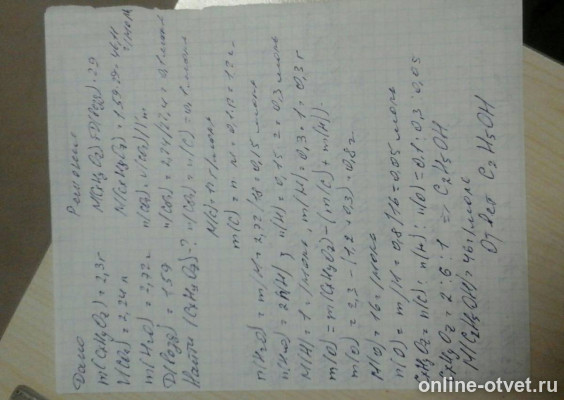 Дано
m(CxHyOz) = 2,3г
V(CO2) = 2,24 л
m(H2O) = 2,7г
D(возд) = 1.59
Найти (CxHyOz)?
Решение
M(CxHyOz) = D(возд) · 29
M(CxHyOz) = 1.59 · 29 = 46,11 г/моль
n(CO2) = V(CO2)/Vm
n(CO2) = 2,24/22,4 = 0,1 моль
n(CO2) = n(C) = 0,1 моль
M(C) = 12 г/моль
m(C) = n · M = 0,1 · 12 = 1,2 г
n(H2O) = m/M = 2,7г/18 = 0,15 моль
n(H2O) = 2n(H); n(H) = 0,15 · 2 = 0,3 моль
M(H) = 1 г/моль; m(H) = 0,3 · 1 = 0,3 г
m(O) = m(CxHyOz) - (m(C) + m(H))
m(O) = 2,3 - (1,2 + 0,3) = 0,8 г
M(O) = 16 г/моль
n(O) = m/M = 0,8/16 = 0,05 моль
CxHyOz = n(C) : n(H) : n(O) = 0.1 : 0.3 : 0,05
CxHyOz = 2 : 6 : 1 => C2H5OH
M(C2H5OH) = 46 г/моль
Ответ C2H5OH
online-otvet.ru